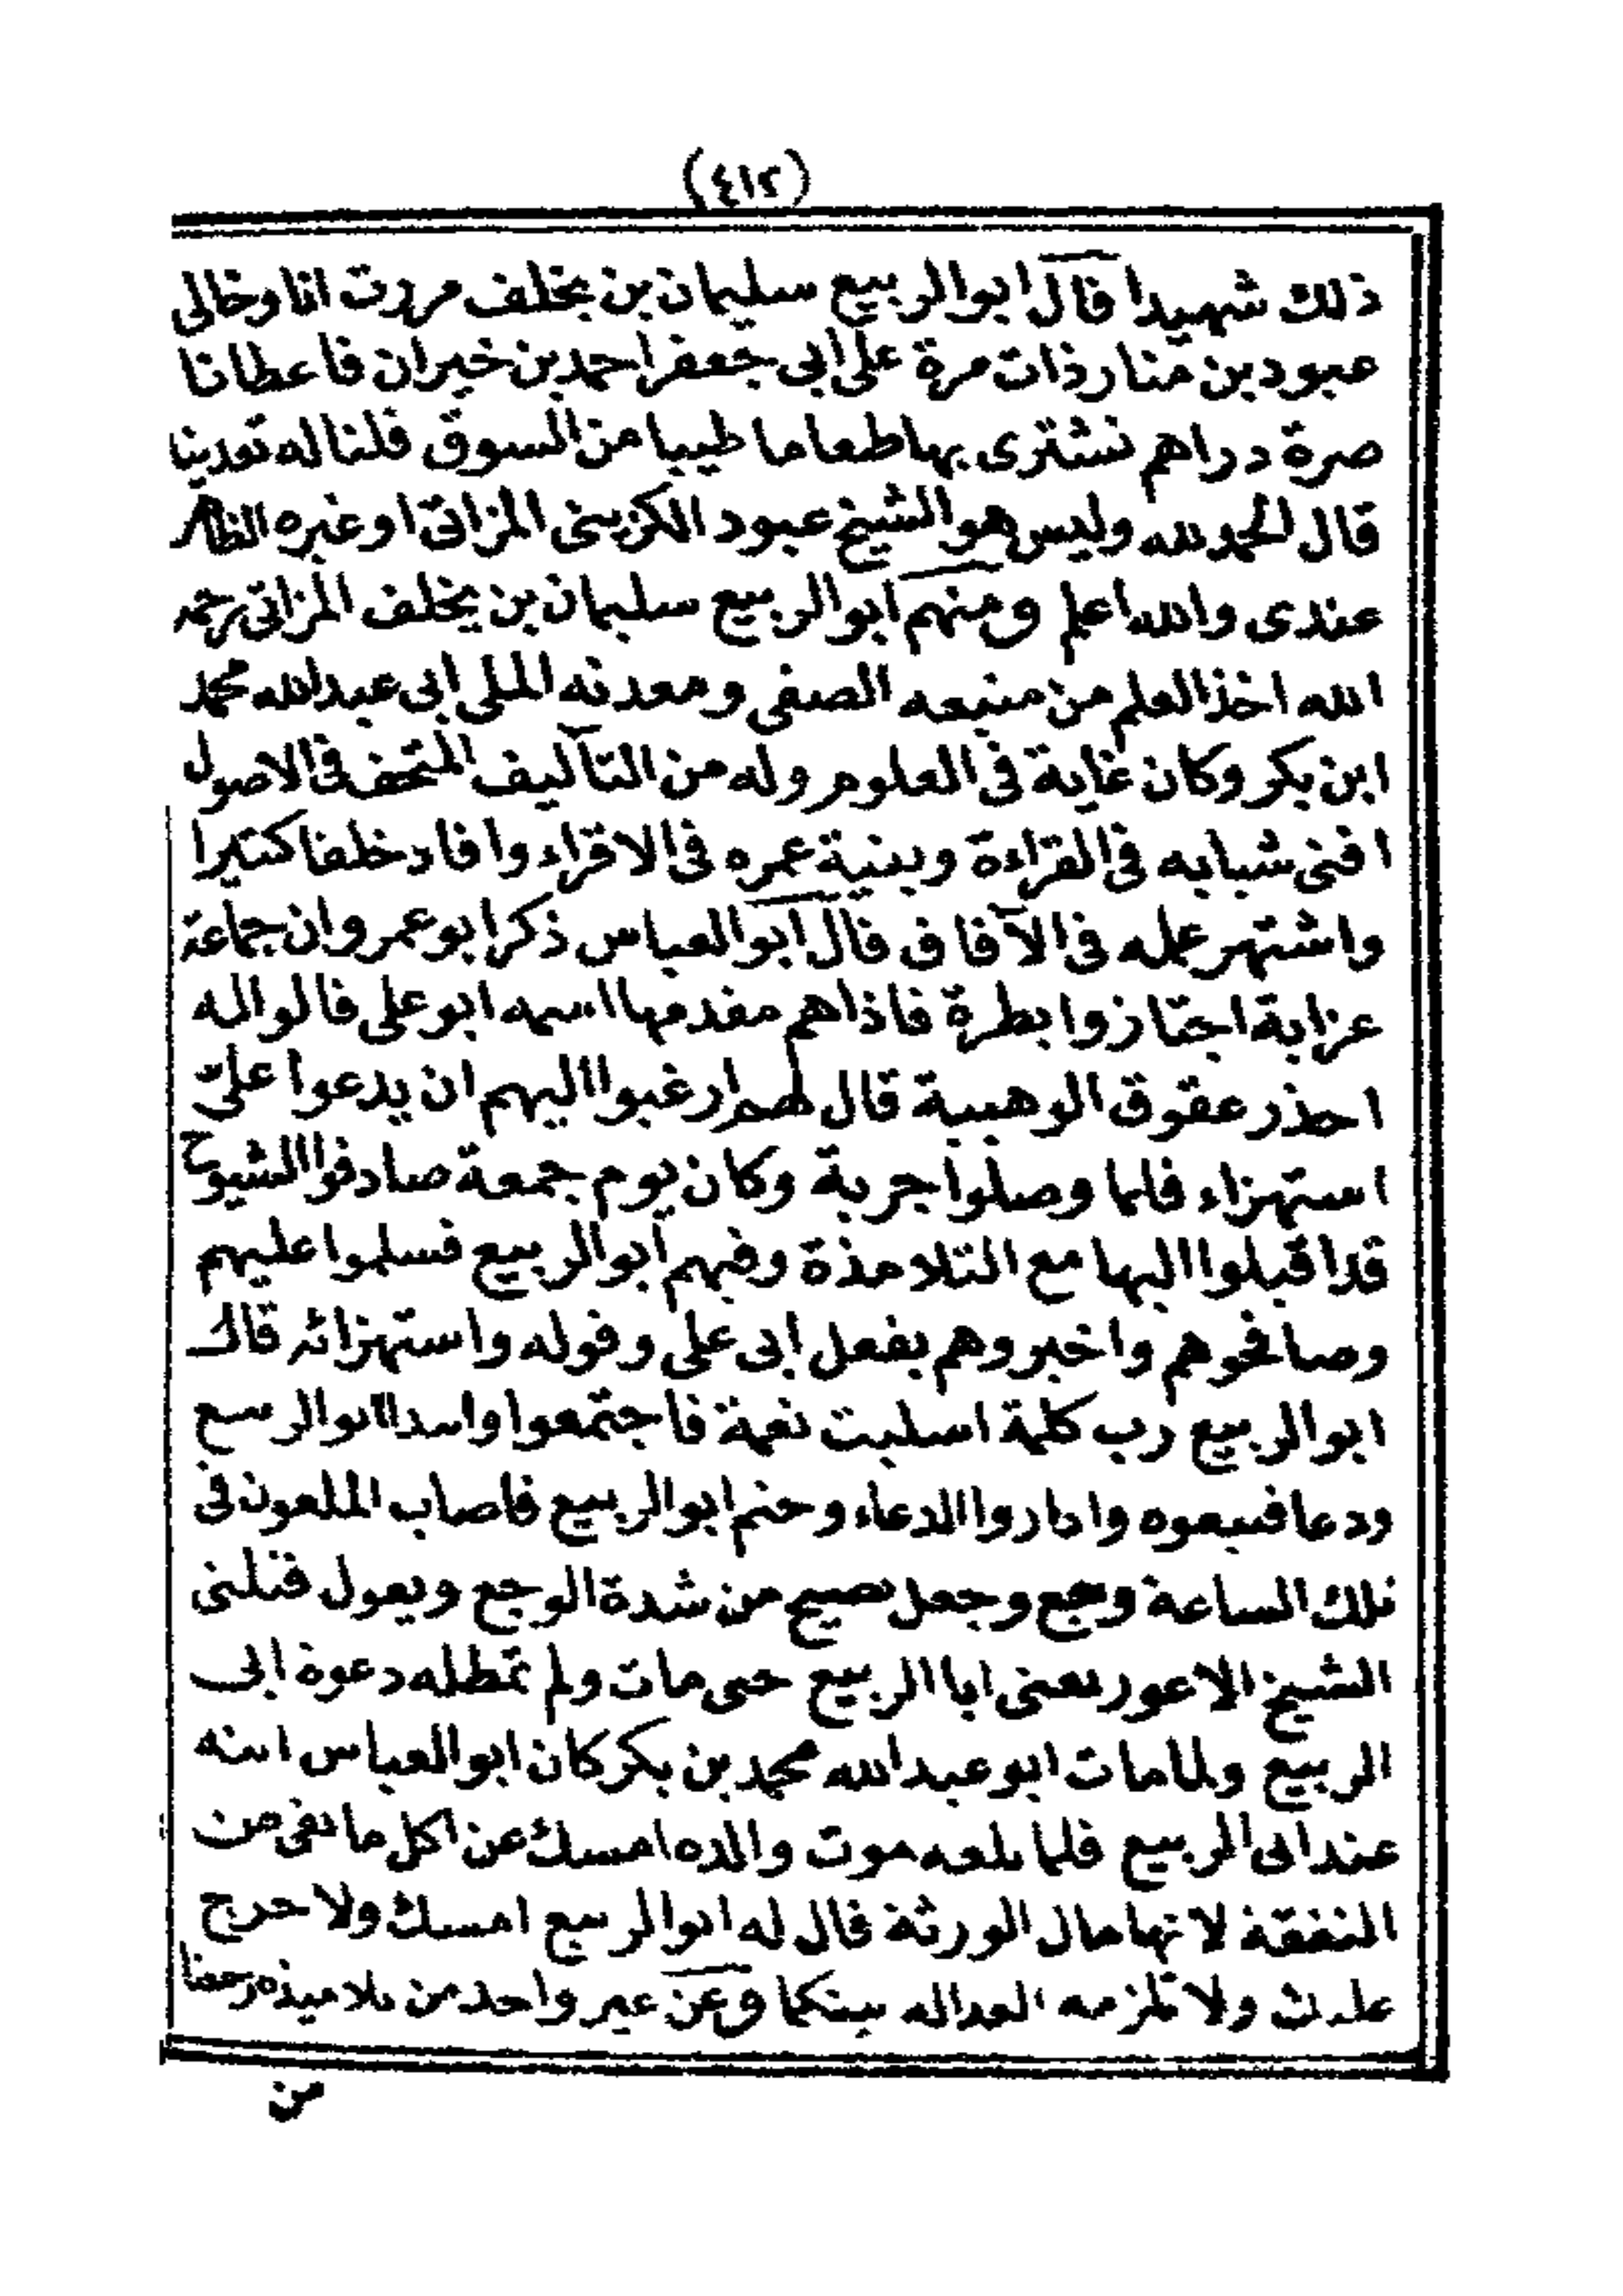 (٤١٢)
ذلك شهيدا قال ابوالربيع سليمان بن يخلف مررت انا وخالى
عبود بن منار ذات مرة على ابى جعفر احمد بن خيران فاعطانا
صرة دراهم نشترى بها طعاما طيبا من السوق فلنا له تعدينا
قال الحمد لله وليس هو الشيخ عبود الكزينى المزاتى او غيره الظاهر
عندى والله اعلم ومنهم ابوالربيع سليمان بن يخلف المزاتى رحمه
الله اخذ العلم من منبعه الصفى ومعدنه الملى ابى عبدالله محمد
ابن بكر وكان غاية فى العلوم وله من التآليف المتحف فى الاصول
افنى شبابه فى القراءة وبنية عمره فى الاقراء وافاد خلفا كثيرا
واشتهر علمه فى الآفاق قال ابوالعباس ذكر ابو عمرو ان جماعة
عزابة اجتازوا بطرة فاذاهم مقدمها اسمه ابو على فالوا له
احذر عقوق الوهبية قال لهم ارغبوا اليهم ان يدعوا علىّ
استهزاء فلما وصلوا جربة وكان يوم جمعة صادفوا الشيوخ
قد اقبلوا اليها مع التلامذة وفيهم ابوالربيع فسلموا عليهم
وصافحوهم واخبروهم بفعل ابى على وقوله واستهزائه قال
ابوالربيع رب كلمة اسلبت نعمة فاجتمعوا وابتدا ابوالربيع
ودعا فتبعوه واداروا الدعاء وختم ابوالربيع فاصاب الملعون فى
تلك الساعة وجع وجعل يصيح من شدة الوجع ويقول قتلنى
الشيخ الاعور يعنى ابا الربيع حتى مات ولم تمطله دعوة ابى
الربيع ولما مات ابو عبدالله محمد بن بكر كان ابو العباس ابنه
عند ابى الربيع فلما بلغه موت والده امسك عن اكل ما بقى من
النفقة لانها مال الورثة قال له ابوالربيع امسك ولا حرج
عليك ولا تلزمه العداله بينكما وعن غير واحد من تلاميذه
من